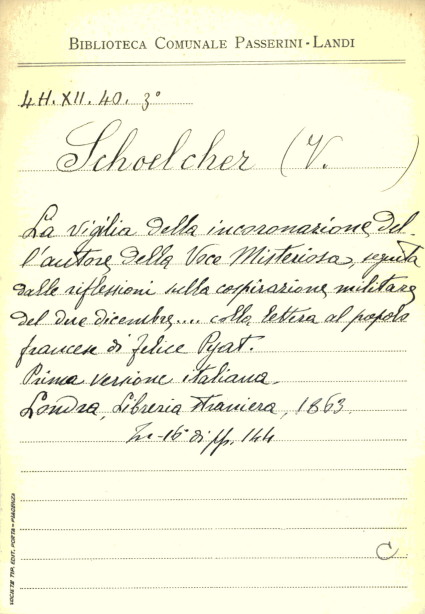 BIBLIOTECA COMUNALE PASSERINI-LANDI
4H.XII.40. 3°
Schoelcher (V. )
La vigilia della incoronazione del-
l'autore della Voce Misteriosa, seguita
dalle riflessioni sulla cospirazione militare
del due dicembre.... colla lettera al popolo
francese di Felice Pyat.
Prima versione italiana.
Londra, Libreria Straniera, 1863.
In-16° di pp. 144
C
SOCIETÀ TIP. EDIT. PORTA-PIACENZA